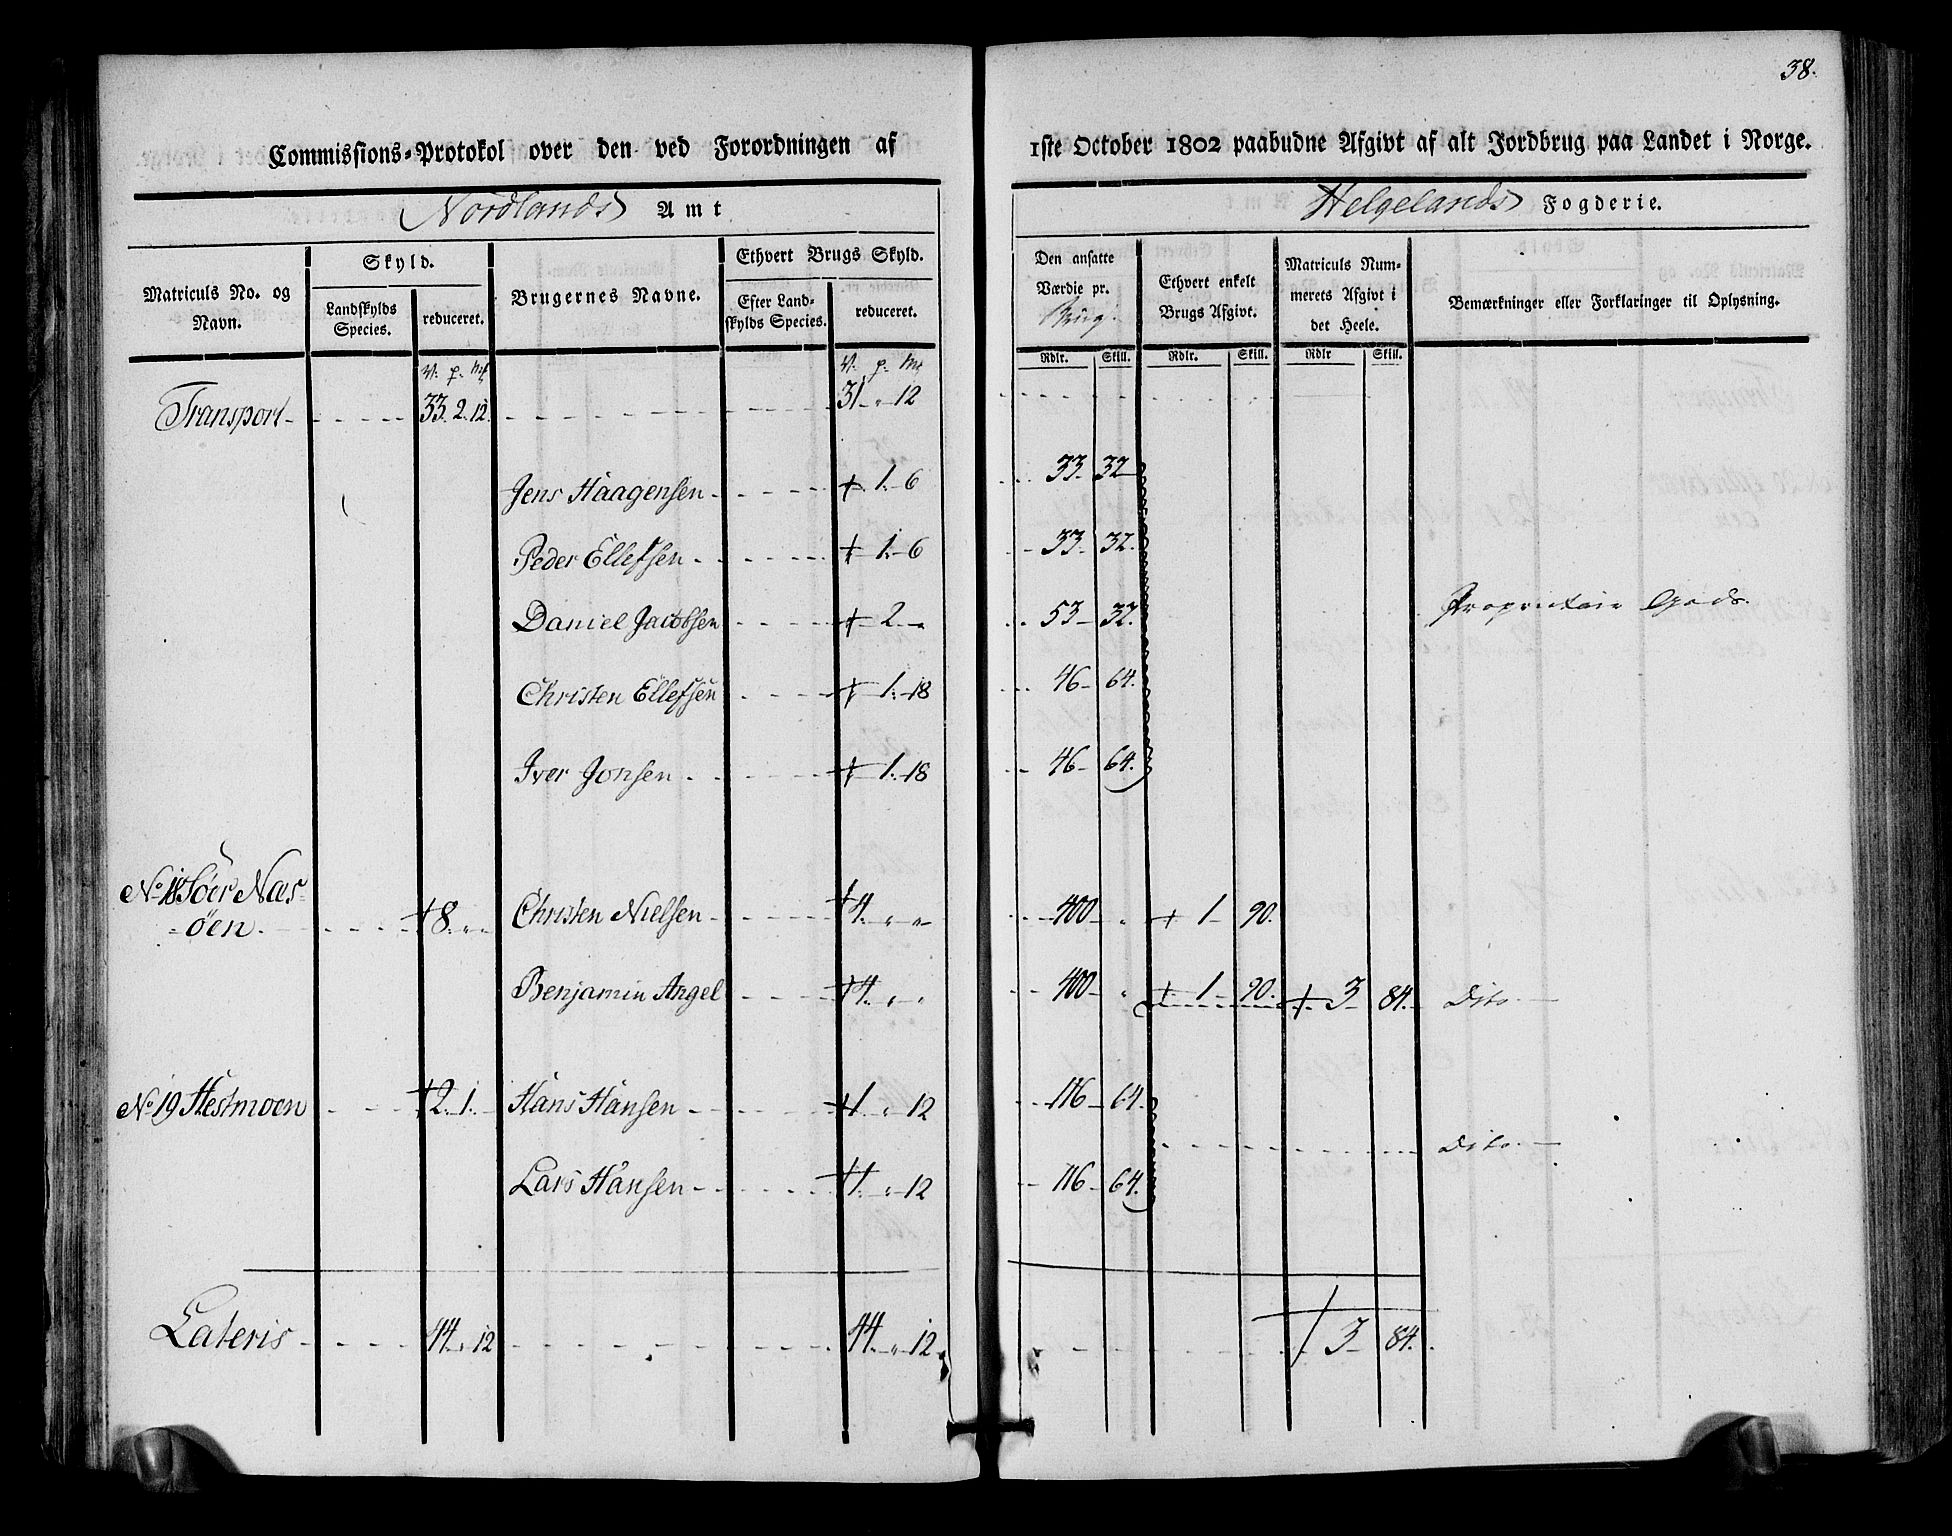 38.
Commissions-Protokol over den ved Forordningen af 1ste October 1802 paabudne Afgivt af alt Jordbrug paa Landet i Norge.
Nordlands Amt Helgelands Fogderie.
Matriculs No. og Navn. Skyld. Landskylds Species. reduceret. Brugernes Navne. Ethvert Brugs Skyld. Efter Landskylds Species. reduceret. Den ansatte Værdie pr. Brug. Ethvert enkelt Brugs Afgivt. Matriculs Nummerets Afgivt i det Heele. Bemærkninger eller Forklaringer til Oplysning.
V. p. Mk V. p. Mk Rdlr. Skill. Rdlr. Skill. Rdlr Skill.
Transport 33. 2. 12. 31 " 12
Jens Haagensen + 1. 6 33. 32
Peder Ellefsen + 1. 6 33. 32.
Daniel Jacobsen + 2 " 53 32. Proprietair Gods.
Christen Ellefsen + 1. 18 46 64.
Iver Jonsen + 1. 18 46 64.
No 18 Söer Næs=
=öen. + 8. " " Christen Nielsen + 4. " " 400 " + 1 90.
Benjamin Angel + 4. " " 400 " + 1 90. + 3 84. Dito.
No 19 Hestmoen + 2. 1. Hans Hansen + 1 " 12 116 64.
Dito.
Lars Hansen + 1. " 12 116 64.
Lateris 44. " 12 44. " 12 + 3 84.